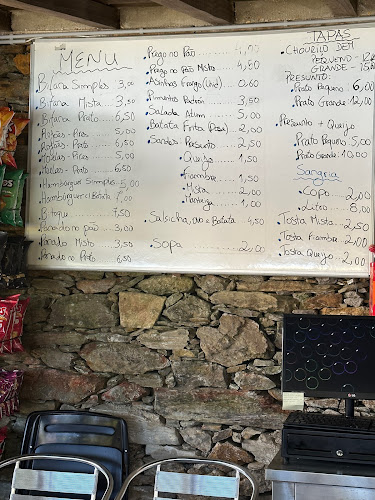 MENU
Bifana Simples 3,00
Bifana Mista 3,50
Bifana Prato 6,5
Pica 5,00
Prato 6,5
Pica 5,00
Moelas - Prato 6,5
Hambúrguer Simples 5,00
Hambúrguer c/ Batata 7,00
Bitoque 7,50
Panado no pão 3,00
Panado Misto 3,50
Panado no Prato 6,5
Prego no Pão 4,00
Prego no Pão Misto 4,50
Asinhas Frango (Uni) 0,60
Pimentos Padrón 3,50
Salada Atum 5,00
Batata Frita (Dose) 2,00
Sandes Presunto 2,50
Queijo 1,50
Fiambre 1,50
Mista 2,00
Manteiga 1,00
Salsicha, ovo e Batata 4,50
Sopa 2,00
TAPAS
Chouriço
Pequeno
Grande
Presunto:
Prato Pequeno 6,00
Prato Grande 12,00
Presunto + Queijo
Prato Pequeno 5,00
Prato Grande 10,00
Sangria
Copo 2,00
Litro 8,00
Tosta Mista 2,50
Tosta Fiambre 2,00
Tosta Queijo 2,00